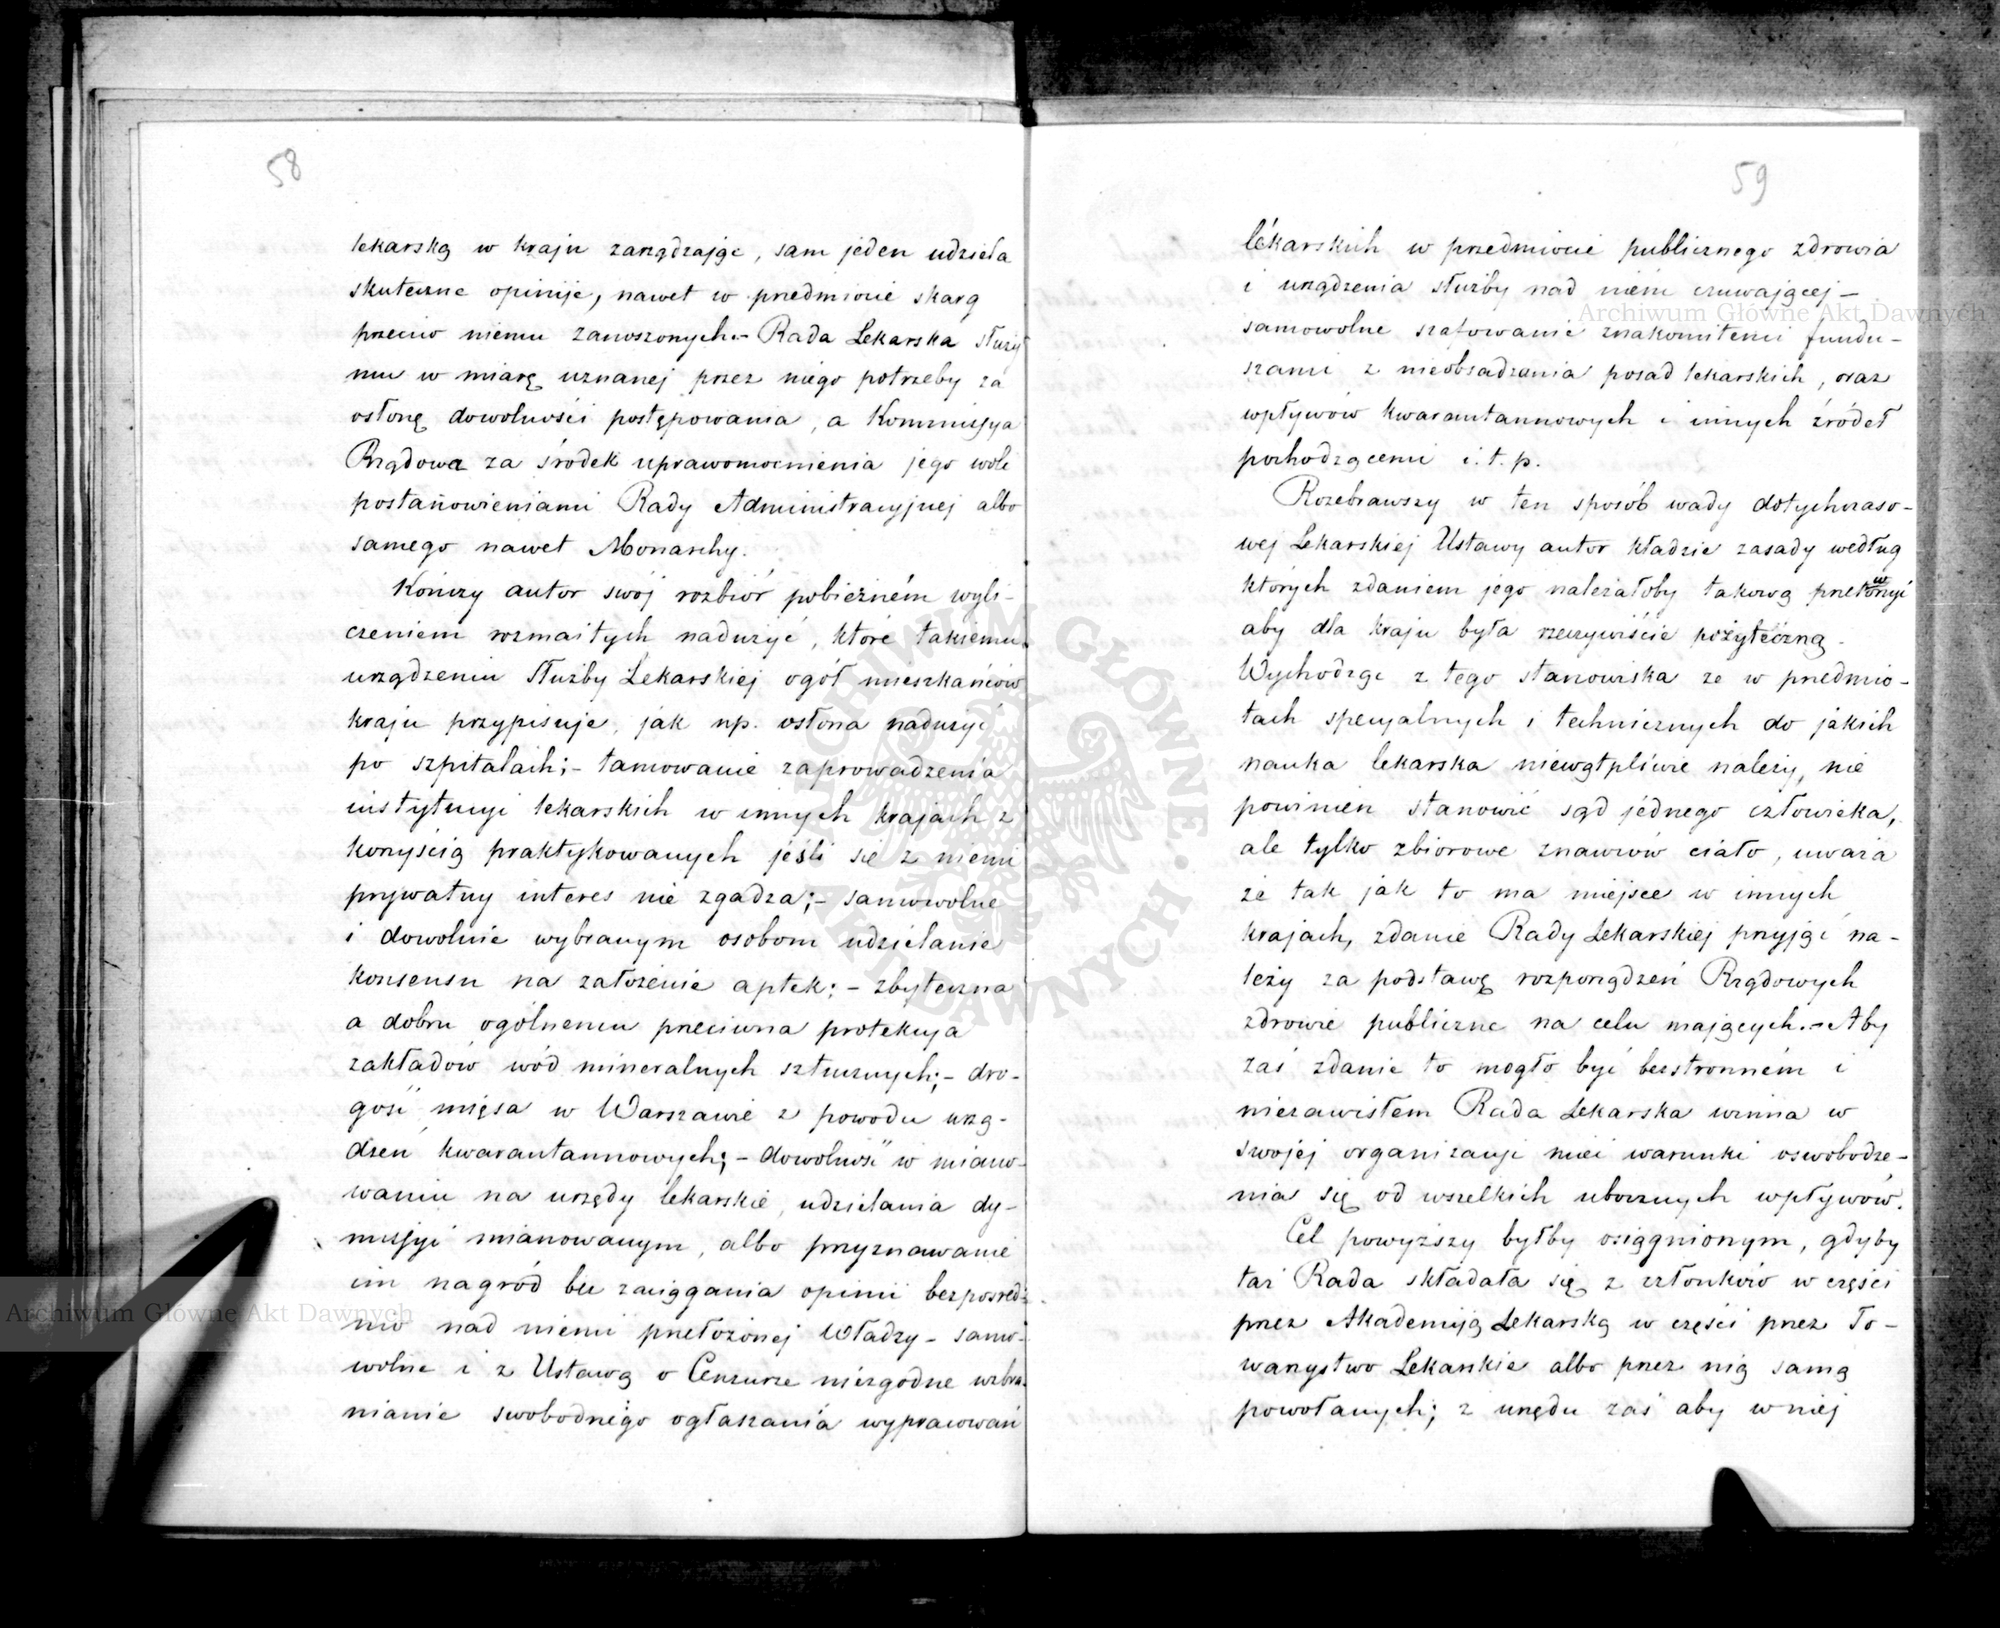 58
lekarską w kraju zarządzając, sam jeden udziela
skuteczne opinije, nawet w przedmiocie skarg
przeciw niemu zanoszonych.– Rada Lekarska służy
mu w miarę uznanej przez niego potrzeby za
osłonę dowolności postępowania, a Kommissya
Rządowa za środek uprawomocnienia jego woli
postanowieniami Rady Administracyjnej albo
samego nawet Monarchy.
Kończy autor swój rozbiór pobieżném wyli-
czeniem rozmaitych nadużyć, które takiemu
urządzeniu Służby Lekarskiej ogół mieszkańców
kraju przypisuje, jak np. osłona nadużyć
po szpitalach;– tamowanie zaprowadzenia
instytucyi lekarskich w innych krajach z
korzyścią praktykowanych jeśli się z niemi
prywatny interes nie zgadza;– samowolne
i dowolnie wybranym osobom udzielanie
konsensu na założenie aptek;– zbyteczna
a dobru ogólnemu przeciwna protekcya
zakładów wód mineralnych sztucznych;– dro-
gość mięsa w Warszawie z powodu urzą-
dzeń kwarantannowych;– dowolność w miano-
waniu na urzędy lekarskie, udzielania dy-
missyi mianowanym, albo przyznawanie
im nagród bez zaciągania opinii bezpośred-
nio nad niemi przełożonej Władzy – samo-
wolne i z Ustawą o Cenzurze niezgodne wzbra-
nianie swobodnego ogłaszania wypracowań
59
lékarskich w przedmiocie publicznego zdrowia
i urządzenia służby nad niém czuwającej –
samowolne szafowanie znakomitemi fundu-
szami z nieobsadzania posad lekarskich, oraz
wpływów kwarantannowych i innych źródeł
pochodzącemi i.t.p.
Rozebrawszy w ten sposób wady dotychczaso-
wej Lekarskiej Ustawy autor kładzie zasady według
których zdaniem jego należałoby takową przetworzyć
aby dla kraju była rzeczywiście pożyteczną.
Wychodząc z tego stanowiska że w przedmio-
tach specyalnych i technicznych do jakich
nauka lekarska niewątpliwie należy, nie
powinien stanowić sąd jednego człowieka,
ale tylko zbiorowe znawców ciało, uważa
że tak jak to ma miejsce w innych
krajach, zdanie Rady Lekarskiej przyjąć na-
leży za podstawę rozporządzeń Rządowych
zdrowie publiczne na celu mających.– Aby
zaś zdanie to mogło być bezstronném i
niezawisłem Rada Lekarska winna w
swojéj organizacyi mieć warunki oswobodze-
nia się od wszelkich ubocznych wpływów.
Cel powyższy byłby osiągnionym, gdyby
taż Rada składała się z członków w części
przez Akademiją Lekarską w części przez To-
warzystwo Lekarskie albo przez nią samą
powołanych; z urzędu zaś aby w niej
Archiwum Główne Akt Dawnych
Archiwum Główne Akt Dawnych
ARCHIWUM GŁÓWNE AKT DAWNYCH